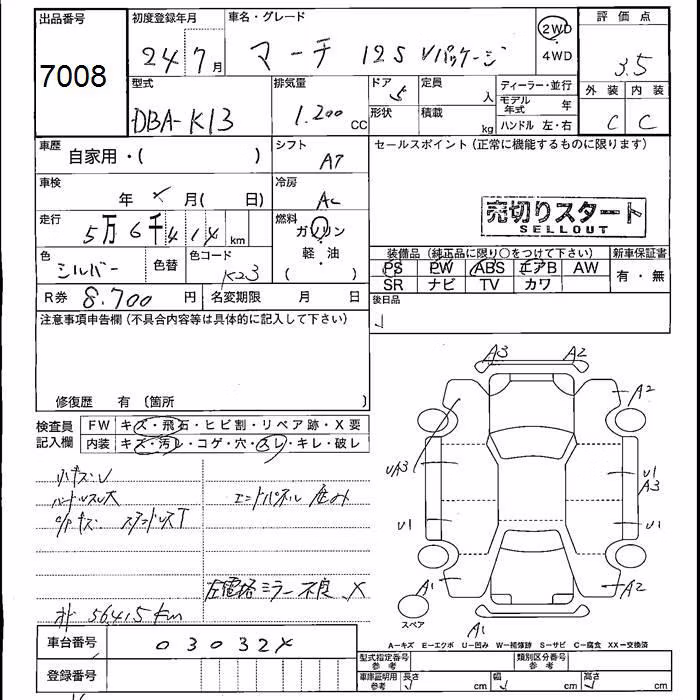 出品番号
7008
初度登録年月
24 7 月
車名・グレード
マーチ 12S Vパッケージ
2WD
4WD
評価点
3.5
外装 内装
C C
型式
DBA-K13
排気量
1.200 CC
ドア 5
形状
定員 人
積載 kg
ディーラー・並行
モデル年式 年
ハンドル 左・右
車歴
自家用・( )
シフト
AT
セールスポイント(正常に機能するものに限ります)
車検
年 月( 日)
冷房
AC
売切りスタート
SELLOUT
走行
5万6千414 km
燃料
ガソリン
・
軽油
( )
装備品(純正品に限り○をつけて下さい)
PS PW ABS エアB AW
SR ナビ TV カワ
新車保証書
有・無
色
シルバー
色替
色コード
K23
R券 8.700 円
名変期限 月 日
後日品
注意事項申告欄(不具合内容等は具体的に記入して下さい)
修復歴 有(箇所 )
検査員
記入欄
FW キズ・飛石・ヒビ割・リペア跡・X要
内装 キズ・汚レ・コゲ・穴・スレ・キレ・破レ
エンドパネル
ミラー 不良 X
56415km
車台番号
登録番号
A3 A2
A2
UA3
U1
A3
U1
U1
A1
A2
A1
スペア
A-キズ E-エクボ U-凹み W-補修跡 S-サビ C-腐食 XX-交換済
型式指定番号
参考
類別区分番号
参考
車庫証明用
参考
長さ cm
幅 cm
高さ cm